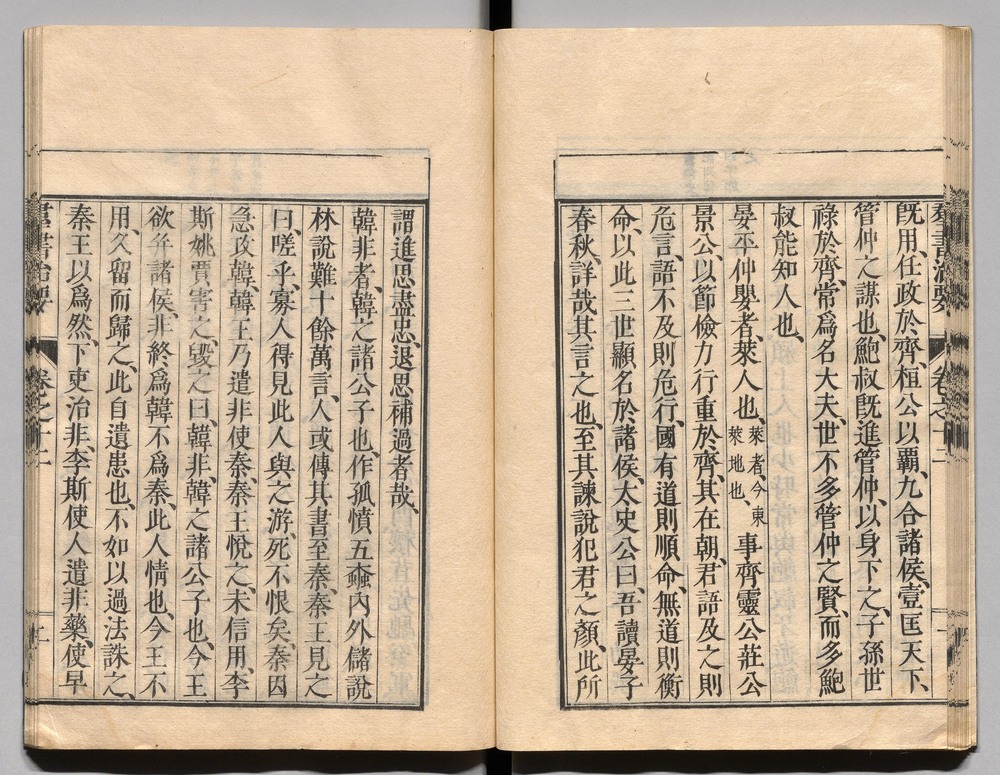 羣書治要 卷之十二
既用任政於齊、桓公以霸、九合諸侯、壹匡天下、
管仲之謀也、鮑叔既進管仲、以身下之、子孫世
祿於齊、常爲名大夫、世不多管仲之賢、而多鮑
叔能知人也、
晏平仲嬰者、萊人也、萊者、今東萊地也、事齊靈公莊公
景公、以節儉力行重於齊、其在朝、君語及之則
危言、語不及則危行、國有道則順命、無道則衡
命、以此三世顯名於諸侯、太史公曰、吾讀晏子
春秋、詳哉其言之也、至其諫說犯君之顏、此所
謂進思盡忠、退思補過者哉、
韓非者、韓之諸公子也、作孤憤五蠧內外儲說
林說難十餘萬言、人或傳其書至秦、秦王見之
曰、嗟乎、寡人得見此人與之游、死不恨矣、秦因
急攻韓、韓王乃遣非使秦、秦王悅之、未信用、李
斯姚賈害之、毀之曰、韓非、韓之諸公子也、今王
欲幷諸侯、非終爲韓不爲秦、此人情也、今王不
用、久留而歸之、此自遺患也、不如以過法誅之、
秦王以爲然、下吏治非、李斯使人遺非藥、使早
羣書治要 卷之十二